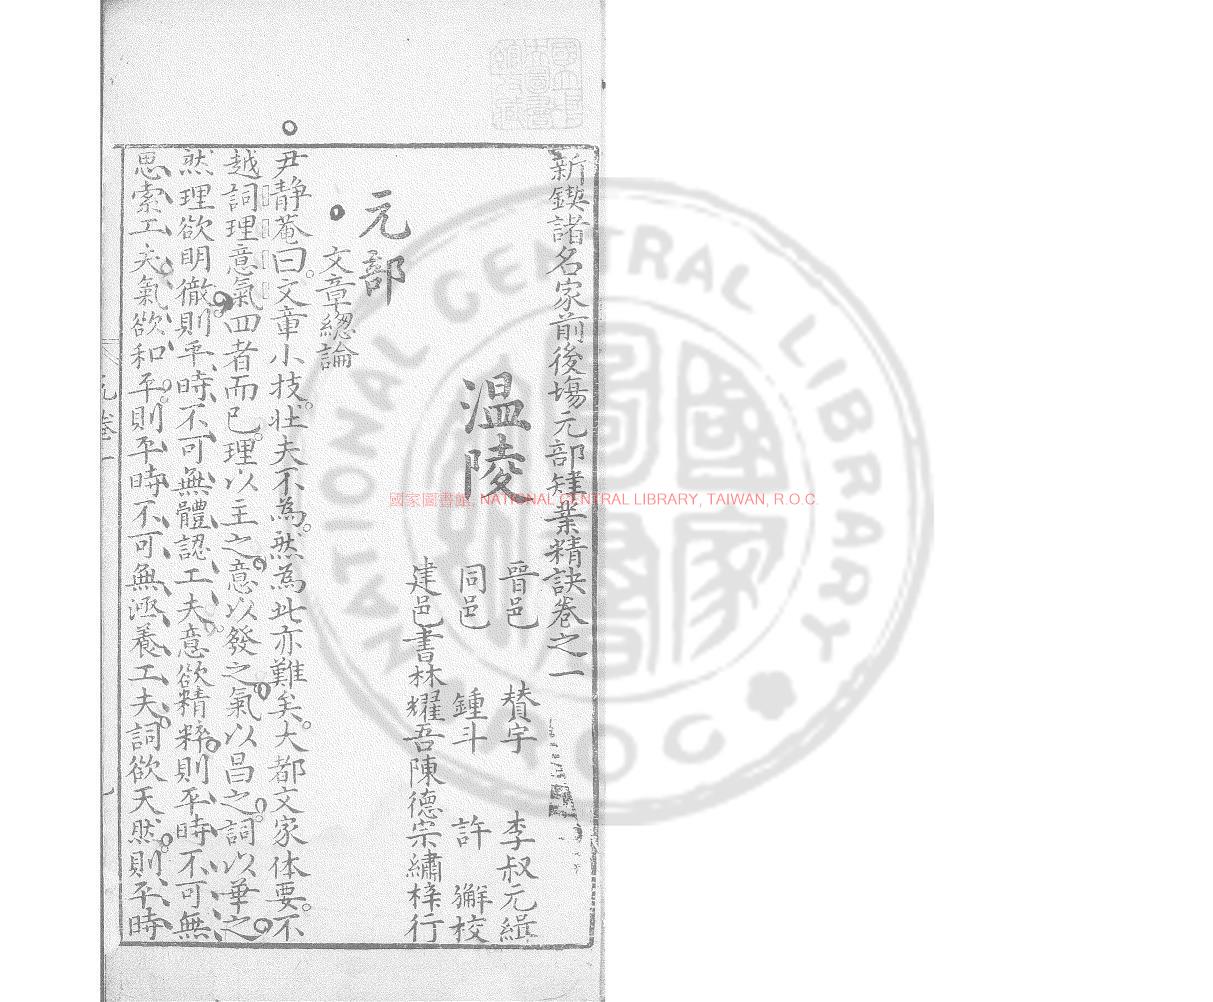 新鍥諸名家前後塲元部肄業精訣卷之一
溫陵
晉邑 賛宇 李叔元緝
同邑 鍾斗 許獬校
建邑書林耀吾陳德宗繡梓行
元部
文章緫論
尹静菴曰文章小技壯夫不為然為此亦難矣大都文家体要不
越詞理意氣四者而已理以主之意以發之氣以昌之詞以華之
然理欲明徹則平時不可無體認工夫意欲精粹則平時不可無
思索工夫氣欲和平則平時不可無涵養工夫詞欲天然則平時
元卷一
國家圖書館, NATIONAL CENTRAL LIBRARY, TAIWAN, R.O.C.
NATIONAL CENTRAL LIBRARY
R.O.C.